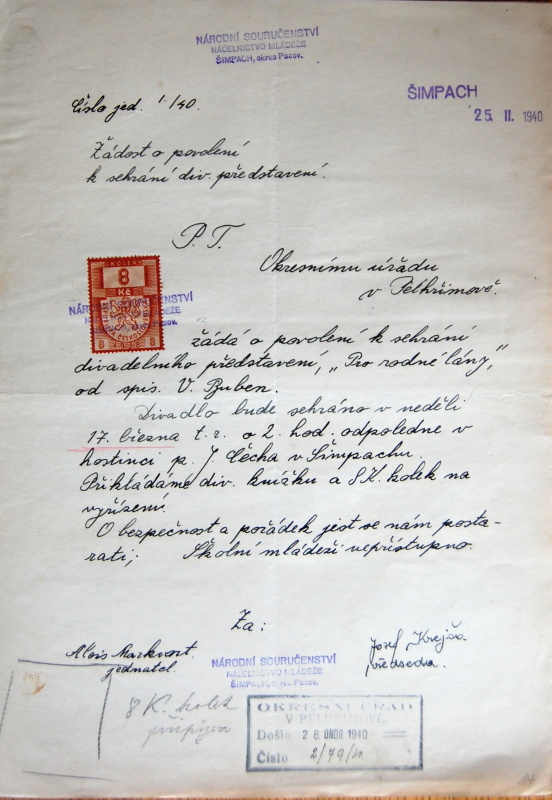 NÁRODNÍ SOURUČENSTVÍ
NÁČELNICTVO MLÁDEŽE
ŠIMPACH, okres Pacov.
ŠIMPACH
25. II. 1940
Číslo jed. 1./40.
Žádost o povolení
k sehrání div. představení.
P. T.
Okresnímu úřadu
v Pelhřimově.
KOLEK
8
Kč
8 8
NÁRODNÍ SOURUČENSTVÍ
NÁČELNICTVO MLÁDEŽE
ŠIMPACH, okres Pacov.
žádá o povolení k sehrání
divadelního představení, "Pro rodné lány",
od spis. V. Buben.
Divadlo bude sehráno v neděli
17. března t. r. o 2. hod. odpoledne v
hostinci p. J. Čecha v Šimpachu.
Přikládáme div. knížku a 8 K. kolek na
vyřízení.
O bezpečnost a pořádek jest se nám posta-
rati; Školní mládeži nepřístupno.
Za:
Alois Markvart.
jednatel.
NÁRODNÍ SOURUČENSTVÍ
NÁČELNICTVO MLÁDEŽE
ŠIMPACH, okres Pacov.
Josef Krejča
předseda.
8 K. kolek
připojen
OKRESNÍ ÚŘAD
V PELHŘIMOVĚ.
Došlo 28. ÚNOR 1940
Číslo 2/79/10.